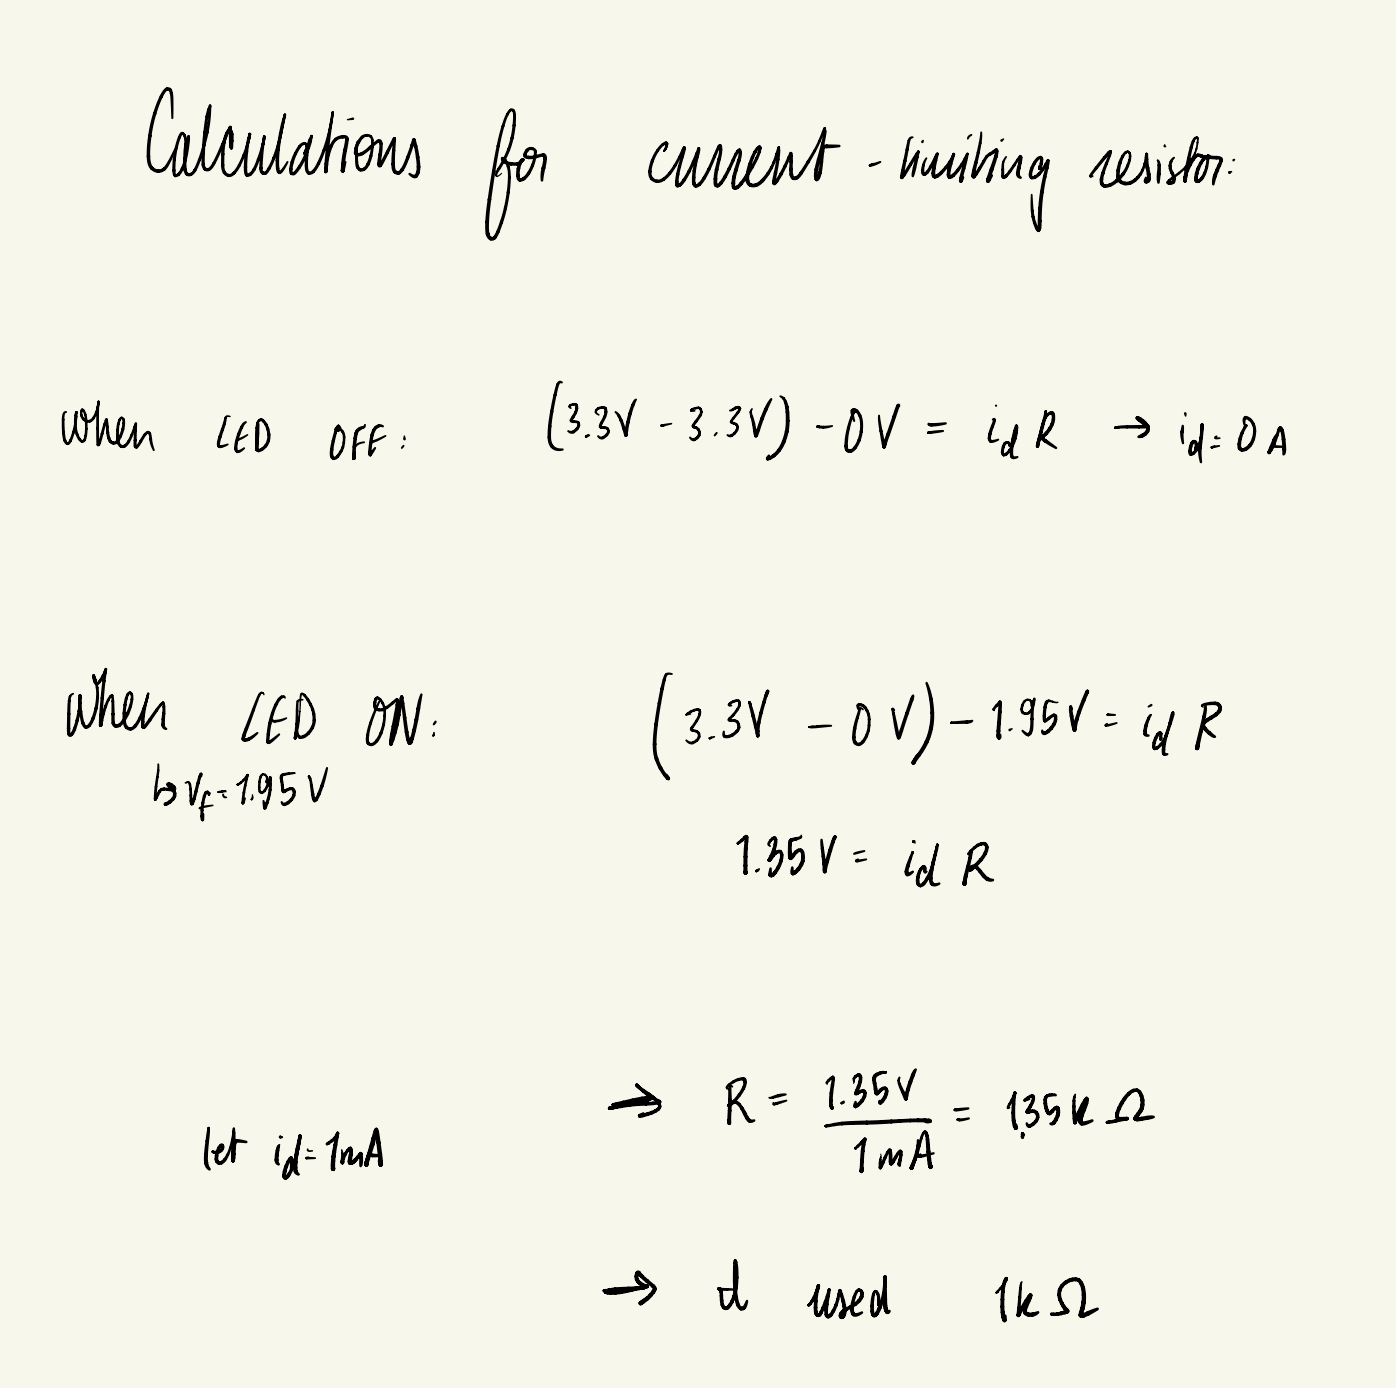 Calculations for current-limiting resistor:
when LED OFF: (3.3V - 3.3V) - 0V = id R → id = 0 A
when LED ON: (3.3V - 0V) - 1.95V = id R
↳ Vf = 1.95 V
1.35 V = id R
→ R = 1.35V / 1mA = 1.35k Ω
let id = 1mA
→ I used 1k Ω